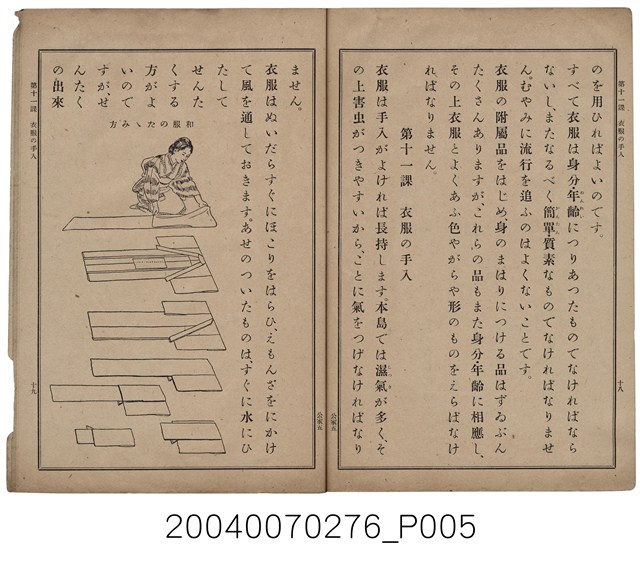 のを用ひればよいのです。
すべて衣服は身分・年齢につりあつたものでなければなら
ないし、またなるべく簡單・質素なものでなければなりませ
ん。むやみに流行を追ふのはよくないことです。
衣服の附屬品をはじめ、身のまはりにつける品はずゐぶん
たくさんありますが、これらの品もまた身分・年齢に相應し、
その上衣服とよくあふ色やがらや形のものをえらばなけ
ればなりません。
第十一課 衣服の手入
衣服は手入がよければ長持します。本島では濕氣が多く、そ
の上害虫がつきやすいから、ことに氣をつけなければなり
第十一課 衣服の手入
十八
公家五
ません。
衣服はぬいだらすぐにほこりをはらひ、えもんざをにかけ
て風を通しておきます。あせのついたものは、すぐに水にひ
たして
せんた
くする
方がよ
いので
すが、せ
んたく
の出來
和服のたゝみ方
第十一課 衣服の手入
十九
公家五
20040070276_P005